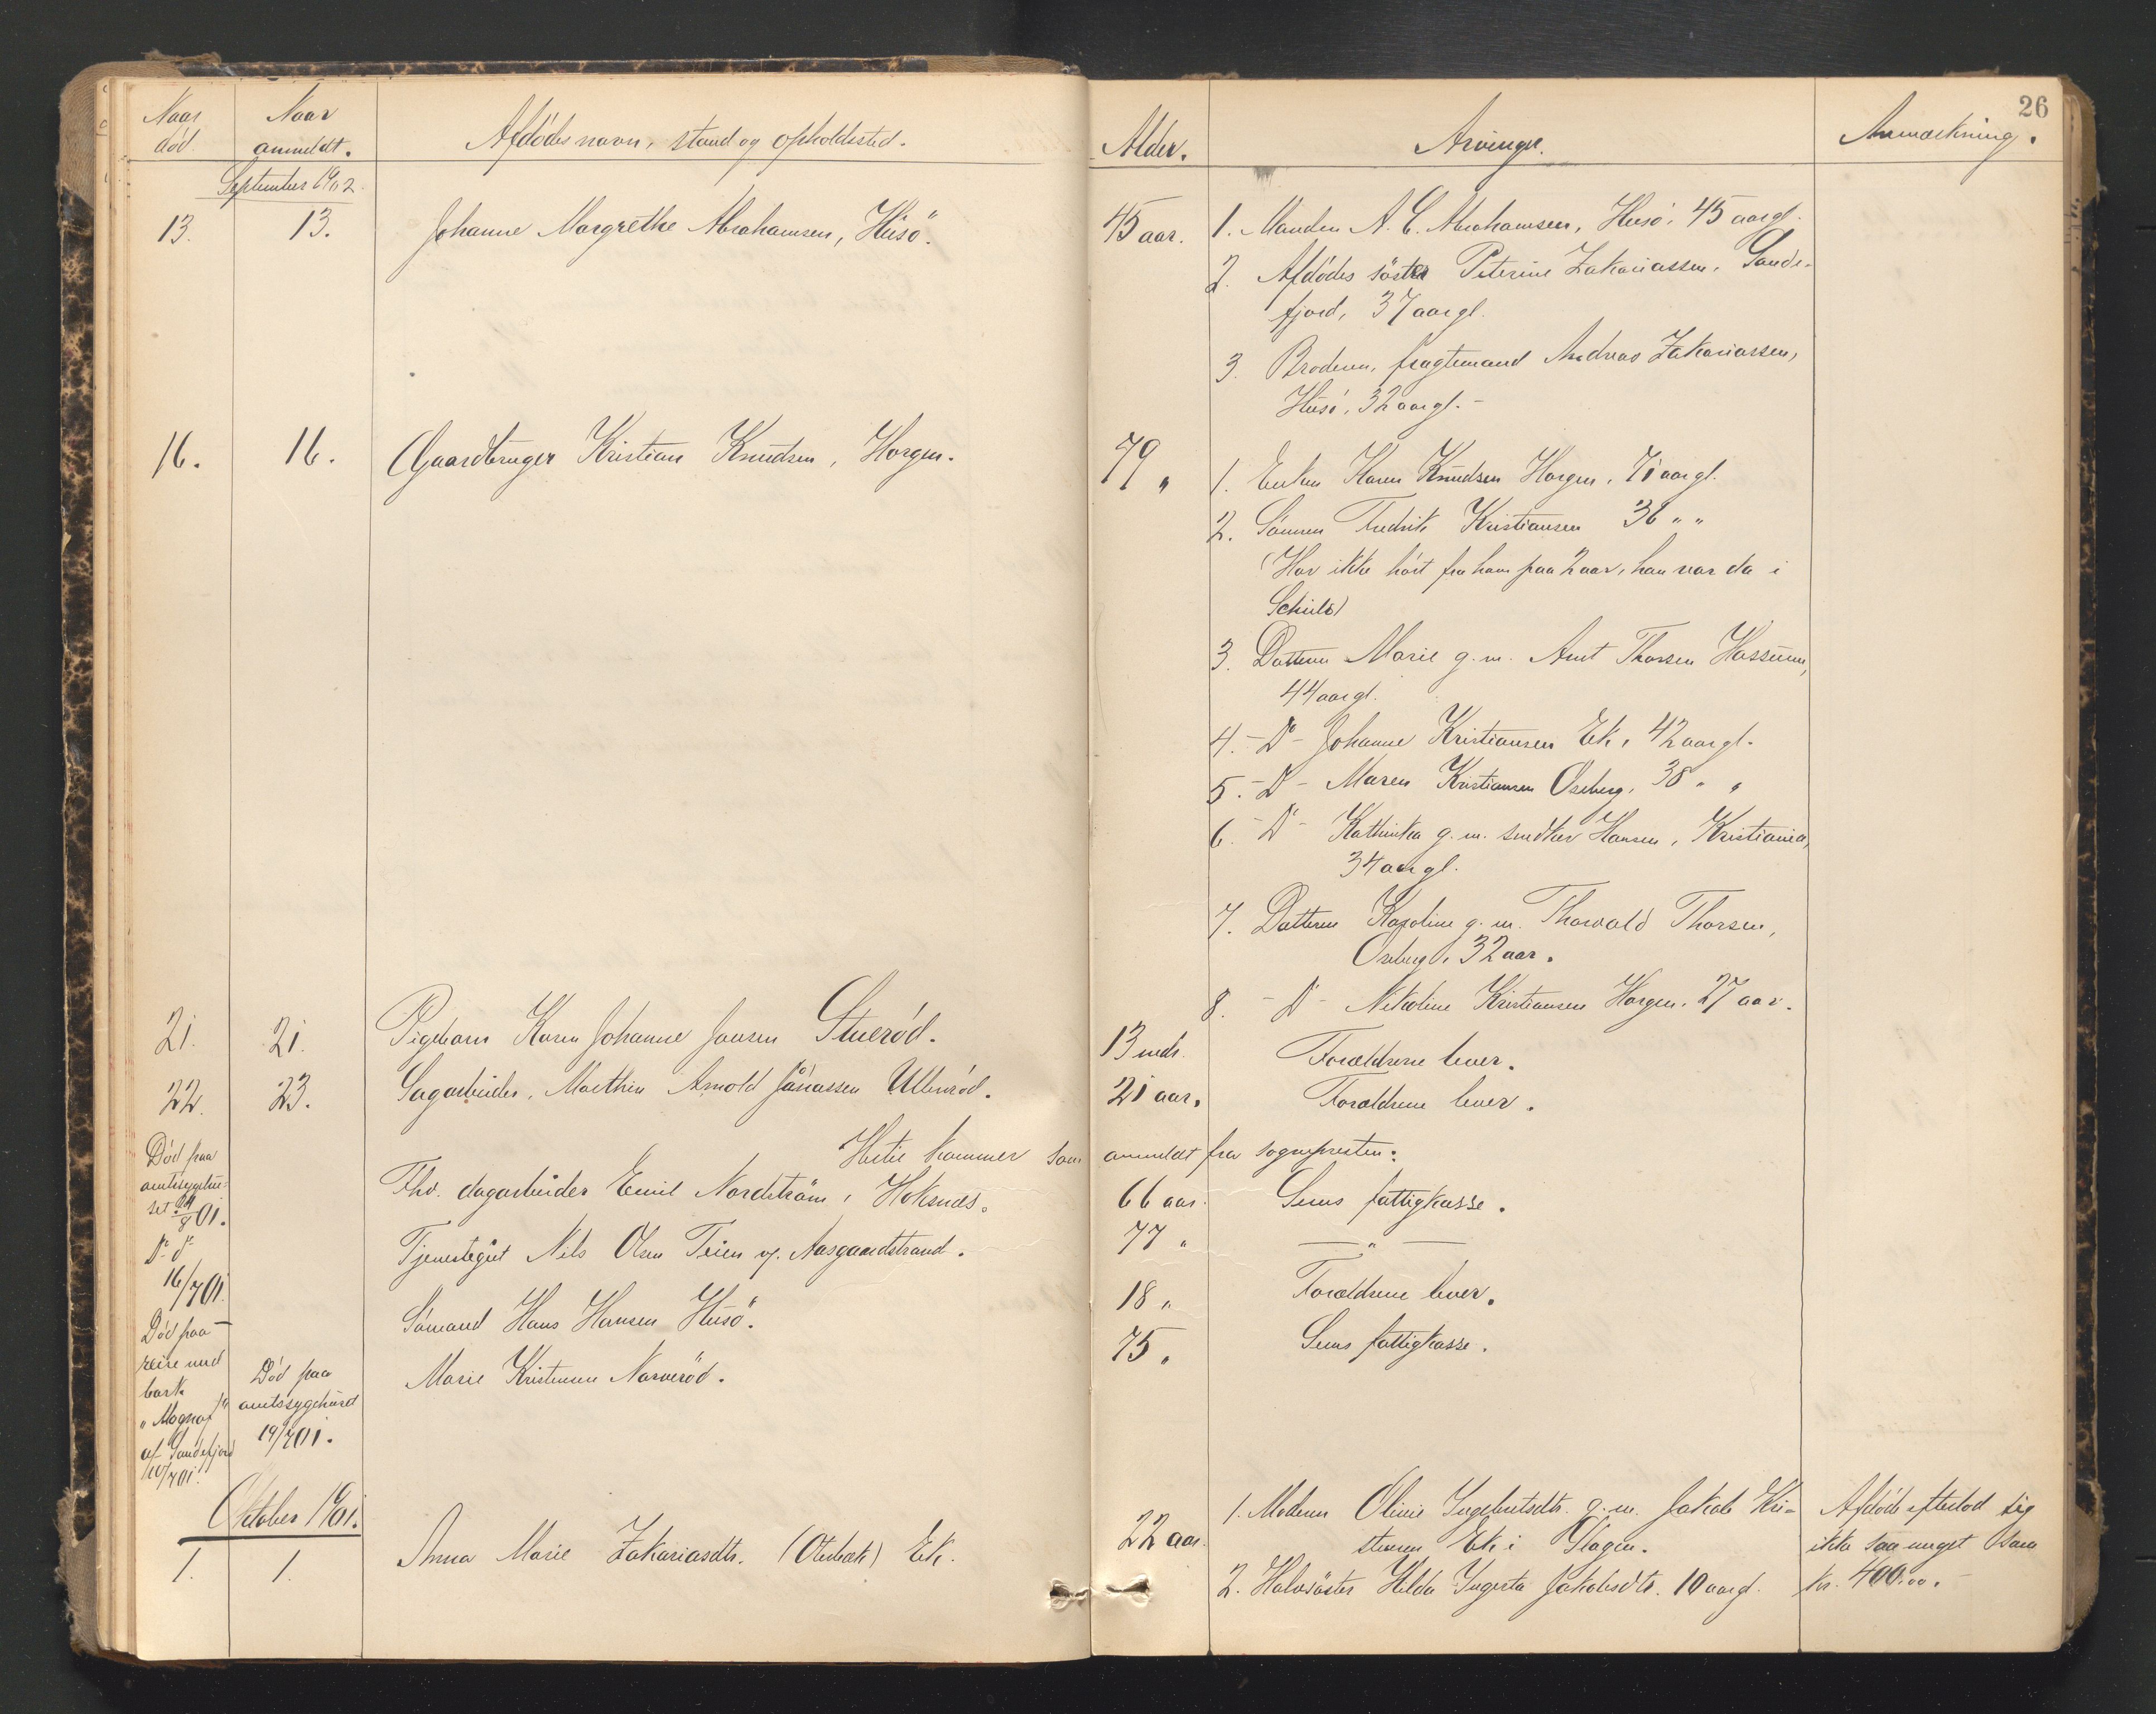 26
Naar død. Naar anmeldt. Afdødes navn, stand og opholdssted. Alder. Arvinger. Anmærkning.
September 1902
13. 13. Johanne Margrethe Abrahamsen, Husö. 45 aar. 1. Manden A. C. Abrahamsen, Husö, 45 aar gl.
2. Afdödes söster Peterine Zakariassen, Sande-
fjord, 37 aar gl.
3. Broderen, fragtemand Andreas Zakariassen,
Husö, 32 aar gl.
16. 16. Gaardbruger Kristian Knudsen, Horgen. 79 " 1. Enken Karen Knudsen Horgen, 71 aar gl.
2. Sönnen Fredrik Kristiansen 36 " "
(Har ikke hört fra ham paa 2 aar, han var da i
3. Datteren Marie g. m. Arnt Thorsen Hassum,
44 aar gl.
4. - Do - Johanne Kristiansen Ek, 42 aar gl.
5. - Do - Maren Kristiansen Oseberg, 38 " "
6. - Do - Kathinka g. m. snedker Hansen, Kristiania,
34 aar gl.
7. Datteren Karoline g. m. Thorvald Thorsen,
Oseberg, 32 aar.
8. - Do - Nikoline Kristiansen Horgen, 27 aar.
21. 21. Pigebarn Karen Johanne Jansen Stueröd. 13 mdr. Forældrene lever.
22. 23. Sagarbeider, Marthin Arnold Jónassen Ulleröd. 21 aar. Forældrene lever.
Hertil kommer som anmeldt fra sognepresten:
Død paa
amtssygehu-
set /8 01. Fhv. dagarbeider Emil Nordström, Hoksnæs. 66 aar. Sems fattigkasse.
Do do
16/7 01. Tjenestegut Nils Olsen Teien v. Aasgaardstrand. 77 " — " —
Død paa
reise med
bark
"Magnaf"
af Sandefjord
10/7 01. Sömand Hans Hansen Husö. 18 " Forældrene lever.
Død paa
amtssygehuset
19/7 01. Marie Kristensen Narveröd. 75 " Sems fattigkasse.
Oktober 1901.
1. 1. Anna Marie Zakariasdtr. (Oterbæk) Ek. 22 aar. 1. Moderen Oline Ingebretsdtr. g. m. Jakob Kri-
stensen Ek i Slagen.
2. Halvsöster Hilda Ingerta Jakobsdtr. 10 aar gl.
Afdöde efterlod sig
ikke saa meget som
kr. 400.00.